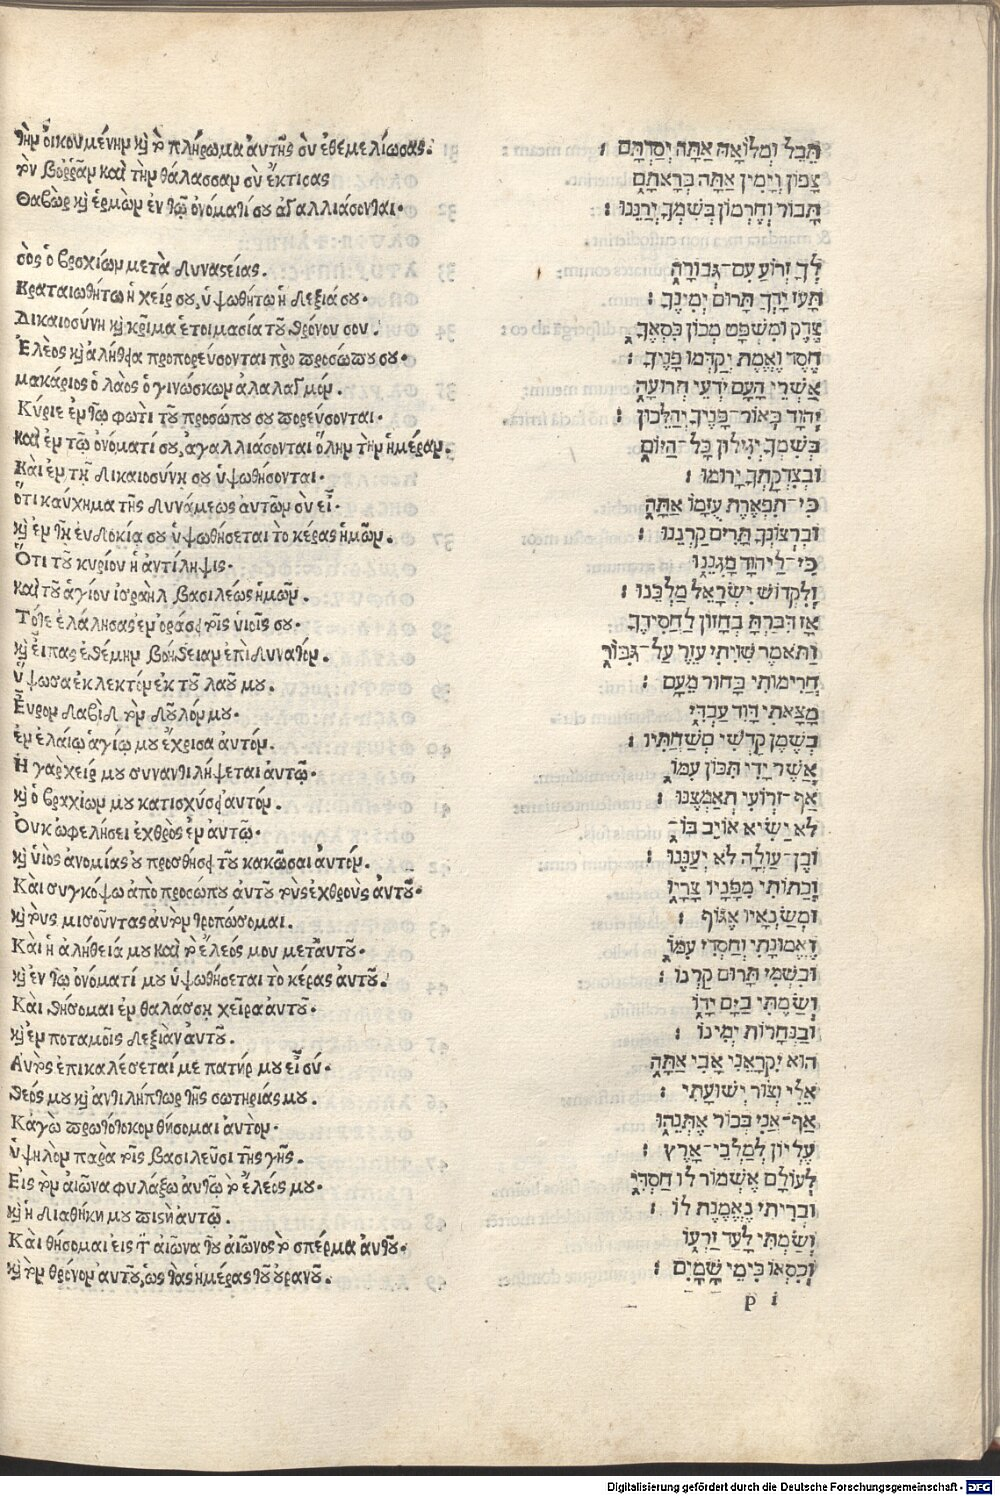 τὴν οἰκουμένην κỳ τὸ πλήρωμα ἀυτῆς σὺ ἐθεμελίωσας.
τὸν βοῤῥᾶν καὶ τὴν θάλασσαν σὺ ἔκτισας
Θαβὼρ κỳ ἑρμὼν ἐν τῷ ὀνοματί σου ἀγαλλιάσονται.
σὸς ὁ βραχίων μετὰ δυναστείας.
Κραταιωθήτω ἡ χείρ σου, ὑψωθήτω ἡ δεξιά σου.
Δικαιοσύνη κỳ κρῖμα ἑτοιμασία τοῦ θρόνου σου.
Ἔλεος κỳ ἀλήθεια προπορέυσονται πρὸ προσώπου σου.
μακάριος ὁ λαὸς ὁ γινώσκων ἀλαλαγμόν.
Κύριε ἐν τῷ φωτὶ τοῦ προσώπου σου πορέυσονται.
καὶ ἐν τῷ ὀνοματί σου, ἀγαλλιάσονται ὅλην τὴν ἡμέραν.
Καὶ ἐν τῇ δικαιοσύνῃ σου ὑψωθήσονται.
ὅτι καύχημα τῆς δυνάμεως ἀυτῶν σὺ εἶ.
κỳ ἐν τῇ ἐυδοκίᾳ σου ὑψωθήσεται τὸ κέρας ἡμῶν.
Ὅτι τοῦ κυρίου ἡ ἀντίληψις.
καὶ τοῦ ἁγίου ἰσραὴλ βασιλέως ἡμῶν.
Τότε ἐλάλησας ἐν ὁράσει τοῖς υἱοῖς σου.
κỳ εἶπας ἐθέμην βοήθειαν ἐπὶ δυνατόν.
ὕψωσα ἐκλεκτὸν ἐκ τοῦ λαοῦ μου.
Ἐυρον δαβὶδ τὸν δοῦλόν μου.
ἐν ἐλαίῳ ἁγίῳ μου ἔχρισα ἀυτόν.
Ἡ γὰρ χείρ μου συναντιλήψεται ἀυτῷ.
κỳ ὁ βραχίων μου κατισχύσει ἀυτόν.
Ὀυκ ὠφελήσει ἐχθρὸς ἐν ἀυτῷ.
κỳ υἱὸς ἀνομίας ὀυ προσθήσει τοῦ κακῶσαι ἀυτόν.
Καὶ συγκόψω ἀπὸ προσώπου ἀυτοῦ τοὺς ἐχθροὺς ἀυτοῦ.
κỳ τοὺς μισοῦντας ἀυτὸν τροπώσομαι.
Καὶ ἡ ἀλήθειά μου καὶ τὸ ἔλεός μου μετ᾽ἀυτοῦ.
κỳ ἐν τῷ ὀνόματί μου ὑψωθήσεται τὸ κέρας ἀυτοῦ.
Καὶ θήσομαι ἐν θαλάσσῃ χεῖρα ἀυτοῦ.
κỳ ἐν ποταμοῖς δεξιὰν ἀυτοῦ.
Ἀυτὸς ἐπικαλέσεταί με πατήρ μου εἶ σύ.
θεός μου κỳ ἀντιλήπτωρ τῆς σωτηρίας μου.
Κἀγὼ πρωτότοκον θήσομαι ἀυτόν.
ὑψηλὸν παρὰ τοῖς βασιλεῦσι τῆς γῆς.
Εἰς τὸν αἰῶνα φυλάξω ἀυτῷ τὸ ἔλεός μου.
κỳ ἡ διαθήκη μου πιστὴ ἀυτῷ.
Καὶ θήσομαι εἰς τὸν αἰῶνα τοῦ αἰῶνος τὸ σπέρμα ἀυτοῦ.
κỳ τὸν θρόνον ἀυτοῦ, ὡς τὰς ἡμέρας τοῦ ὀυρανοῦ.
תֵּבֵל וּמְלוֹאָהּ אַתָּה יְסַדְתָּם :
צָפוֹן וְיָמִין אַתָּה בְרָאתָם
תָּבוֹר וְחֶרְמוֹן בְּשִׁמְךָ יְרַנֵּנוּ :
לְךָ זְרוֹעַ עִם־גְּבוּרָה
תָּעֹז יָדְךָ תָּרוּם יְמִינֶךָ :
צֶדֶק וּמִשְׁפָּט מְכוֹן כִּסְאֶךָ
חֶסֶד וֶאֱמֶת יְקַדְּמוּ פָנֶיךָ :
אַשְׁרֵי הָעָם יֹדְעֵי תְרוּעָה
יְהוָה בְּאוֹר־פָּנֶיךָ יְהַלֵּכוּן :
בְּשִׁמְךָ יְגִילוּן כָּל־הַיּוֹם
וּבְצִדְקָתְךָ יָרוּמוּ :
כִּי־תִפְאֶרֶת עֻזָּמוֹ אַתָּה
וּבִרְצוֹנְךָ תָּרִים קַרְנֵנוּ :
כִּי־לַיהוָה מָגִנֵּנוּ
וְלִקְדוֹשׁ יִשְׂרָאֵל מַלְכֵּנוּ :
אָז דִּבַּרְתָּ בְחָזוֹן לַחֲסִידֶיךָ
וַתֹּאמֶר שִׁוִּיתִי עֵזֶר עַל־גִּבּוֹר
הֲרִימוֹתִי בָחוּר מֵעָם :
מָצָאתִי דָּוִד עַבְדִּי
בְּשֶׁמֶן קָדְשִׁי מְשַׁחְתִּיו :
אֲשֶׁר יָדִי תִּכּוֹן עִמּוֹ
אַף־זְרוֹעִי תְאַמְּצֶנּוּ :
לֹא יַשִּׁיא אוֹיֵב בּוֹ
וּבֶן־עַוְלָה לֹא יְעַנֶּנּוּ :
וְכַתּוֹתִי מִפָּנָיו צָרָיו
וּמְשַׂנְאָיו אֶגּוֹף :
וֶאֱמוּנָתִי וְחַסְדִּי עִמּוֹ
וּבִשְׁמִי תָּרוּם קַרְנוֹ :
וְשַׂמְתִּי בַיָּם יָדוֹ
וּבַנְּהָרוֹת יְמִינוֹ :
הוּא יִקְרָאֵנִי אָבִי אַתָּה
אֵלִי וְצוּר יְשׁוּעָתִי :
אַף־אָנִי בְּכוֹר אֶתְּנֵהוּ
עֶלְיוֹן לְמַלְכֵי־אָרֶץ :
לְעוֹלָם אֶשְׁמוֹר לוֹ חַסְדִּי
וּבְרִיתִי נֶאֱמֶנֶת לוֹ :
וְשַׂמְתִּי לָעַד זַרְעוֹ
וְכִסְאוֹ כִּימֵי שָׁמָיִם :
p i
Digitalisierung gefördert durch die Deutsche Forschungsgemeinschaft - DFG